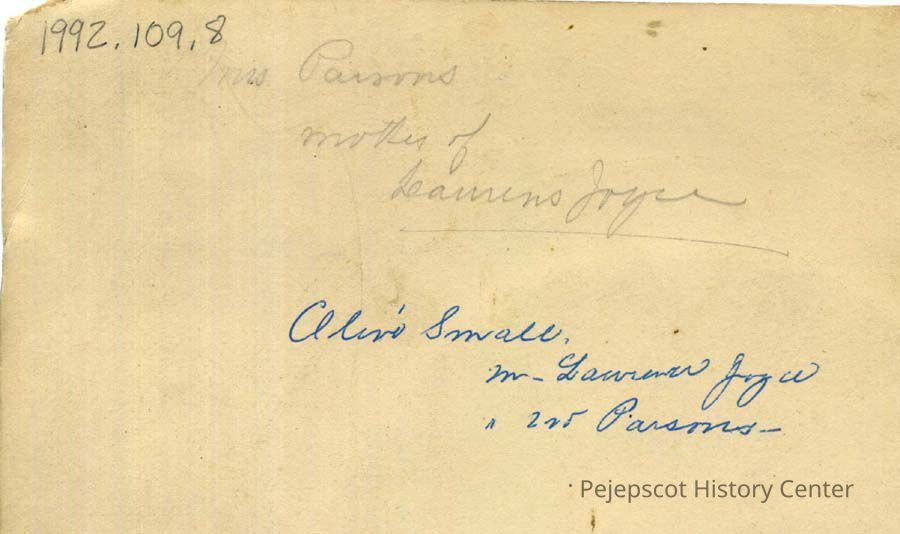 1992.109.8
Mrs Parsons
mother of
Laurens Joyce
Olive Small.
m - Lawrence Joyce
" Parsons -
Pejepscot History Center